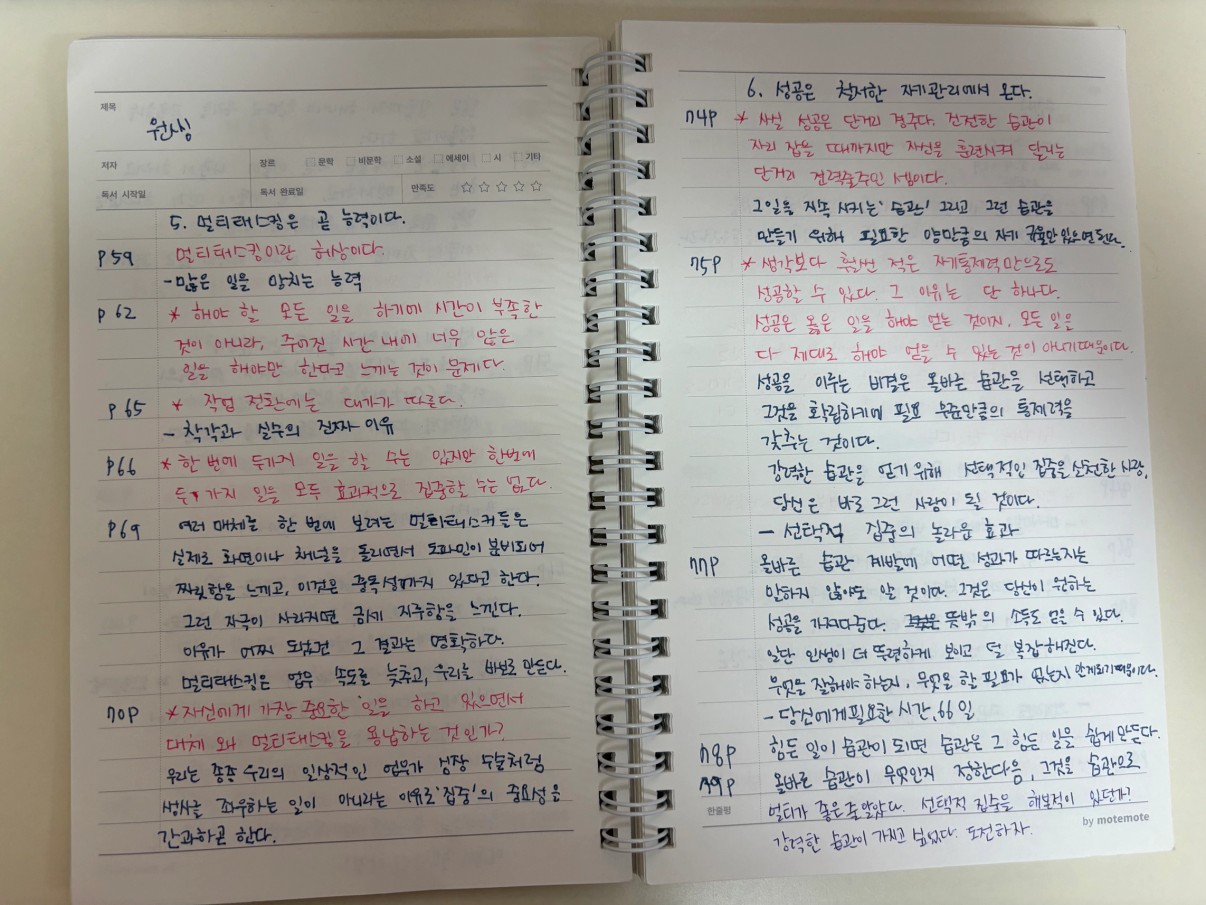 제목
원씽
저자
장르 문학 비문학 소설 에세이 시 기타
독서 시작일 독서 완료일 만족도 ☆☆☆☆☆
5. 멀티태스킹은 곧 능력이다.
P59 멀티태스킹이란 허상이다.
- 많은 일을 망치는 능력
P62 * 해야 할 모든 일을 하기에 시간이 부족한
것이 아니라, 주어진 시간 내에 너무 많은
일을 해야만 한다고 느끼는 것이 문제다.
P65 * 작업 전환에는 대가가 따른다.
- 착각과 실수의 진짜 이유
P66 * 한 번에 두가지 일을 할 수는 있지만 한번에
두 가지 일을 모두 효과적으로 집중할 수는 없다.
P69 여러 매체를 한 번에 보려는 멀티태스커들은
실제로 화면이나 채널을 돌리면서 도파민이 분비되어
짜릿함을 느끼고, 이것은 중독성까지 있다고 한다.
그런 자극이 사라지면 금세 지루함을 느낀다.
이유가 어찌 되었건 그 결과는 명확하다.
멀티태스킹은 업무 속도를 늦추고, 우리를 바보로 만든다.
70P * 자신에게 가장 중요한 일을 하고 있으면서
대체 왜 멀티태스킹을 용납하는 것인가?
우리는 종종 우리의 일상적인 업무가 심장 수술처럼
생사를 좌우하는 일이 아니라는 이유로 '집중'의 중요성을
간과하곤 한다.
6. 성공은 철저한 자기관리에서 온다.
74P * 사실 성공은 단거리 경주다. 건전한 습관이
자리 잡을 때까지만 자신을 훈련시켜 달리는
단거리 전력질주인 셈이다.
그 일을 지속 시키는 '습관' 그리고 그런 습관을
만들기 위해 필요한 양만큼의 자기 규율만 있으면 된다.
75P * 생각보다 훨씬 적은 자기통제력만으로도
성공할 수 있다. 그 이유는 단 하나다.
성공은 옳은 일을 해야 얻는 것이지, 모든 일을
다 제대로 해야 얻을 수 있는 것이 아니기 때문이다.
성공을 이루는 비결은 올바른 습관을 선택하고
그것을 확립하기에 필요 수준만큼의 통제력을
갖추는 것이다.
강력한 습관을 얻기 위해 선택적인 집중을 실천한 사람,
당신은 바로 그런 사람이 될 것이다.
- 선택적 집중의 놀라운 효과
77P 올바른 습관 계발에 어떤 성과가 따르는지는
말하지 않아도 알 것이다. 그것은 당신이 원하는
성공을 가져다준다. 뜻밖의 소득도 얻을 수 있다.
일단 인생이 더 뚜렷하게 보이고 덜 복잡해진다.
무엇을 잘해야 하는지, 무엇을 할 필요가 없는지 알게되기 때문이다.
- 당신에게 필요한 시간, 66일
78P 힘든 일이 습관이 되면 습관은 그 힘든 일을 쉽게 만든다.
79P 올바른 습관이 무엇인지 정한다음, 그것을 습관으로
한줄평 멀티가 좋은 줄 알았다. 선택적 집중을 해본적이 있던가?
강력한 습관이 가지고 싶었다. 도전하자.
by motemote